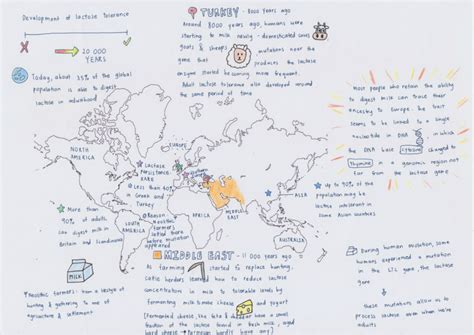 Development of lactose tolerance
20 000
YEARS
Today, about 35% of the global
population is able to digest
lactose in adulthood
TURKEY - 8000 Years ago
Around 8000 years ago, humans were
starting to milk newly - domesticated cows
goats & sheeps mutations near the
gene that produces the lactase
enzyme started becoming more frequent.
Adult lactose tolerance also developed around
the same period of time
Most people who retain the ability
to digest milk can trace their
ancestry to Europe, the trait
seems to be linked to a single
nucleotide in DNA in which
the DNA base cytosine changed to
Thymine in a genomic region not
far from the lactase gene
NORTH
AMERICA
EUROPE
LACTASE
PERSISTANCE
RARE
Less than 40%
in Greece and
Turkey
ASIA
Up to 90% of the
population may be
lactose intolerant in
some Eastern Asian
countries
More than
90% of adults
can digest milk in
Britain and Scandinavia
SOUTH
AMERICA
Neolithic
farmers
settled there
before mutation
appeared
AFRICA
MIDDLE
EAST
AUSTRALIA
MILK
Neolithic farmers - from a lifestyle of
hunting & gathering to one of
agriculture & settlement
MIDDLE EAST - 11 000 years ago
As farming started to replace hunting
Cattle herders learned how to reduce lactose
concentrations in milk to tolerable levels by
fermenting milk to make cheese and yogurt
During human mutation, some
humans experienced a mutation
in the LTC gene, the lactase
gene
these mutations allow us to
process lactose even when
we're adults